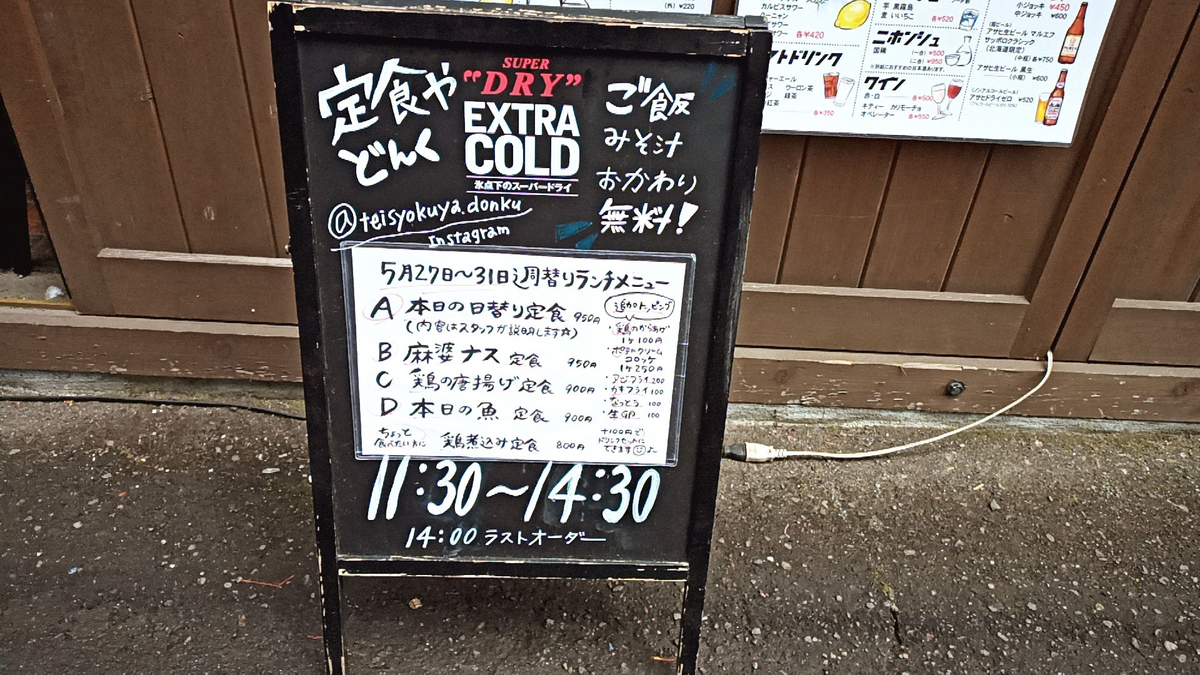 定食や
どんく
SUPER
"DRY"
EXTRA
COLD
氷点下のスーパードライ
ご飯
みそ汁
おかわり
無料!
@teisyokuya.donku
Instagram
5月27日～31日週替りランチメニュー
A 本日の日替り定食 950円
(内容はスタッフが説明します☆)
B 麻婆ナス定食 950円
C 鶏の唐揚げ定食 900円
D 本日の魚定食 900円
ちょっと
食べたい方に
鶏煮込み定食 800円
追加トッピング
・鶏のからあげ
1ヶ100円
・ポテトクリーム
コロッケ
1ヶ250円
・アジフライ 200
・カキフライ 100
・なっとう 100
・生GP 100
+100円で
ドリンクセットに
できます
11:30～14:30
14:00 ラストオーダー
(外) ¥220
カルピスサワー
各¥420
芋 黒霧島
麦 いいちこ
各¥520
ニホンシュ
国稀
(一合) ¥500
(二合) ¥950
トドリンク
ウーロン茶
緑茶
紅茶
各¥350
ワイン
赤・白
各¥500
キティー カリモーチョ
オペレーター
各¥550
小ジョッキ ¥450
中ジョッキ ¥600
アサヒ生ビール マルエフ
サッポロクラシック
(北海道限定)
(中瓶) 各¥750
アサヒ生ビール 黒生
(小瓶) ¥600
(ノンアルコールビール)
アサヒドライゼロ ¥520